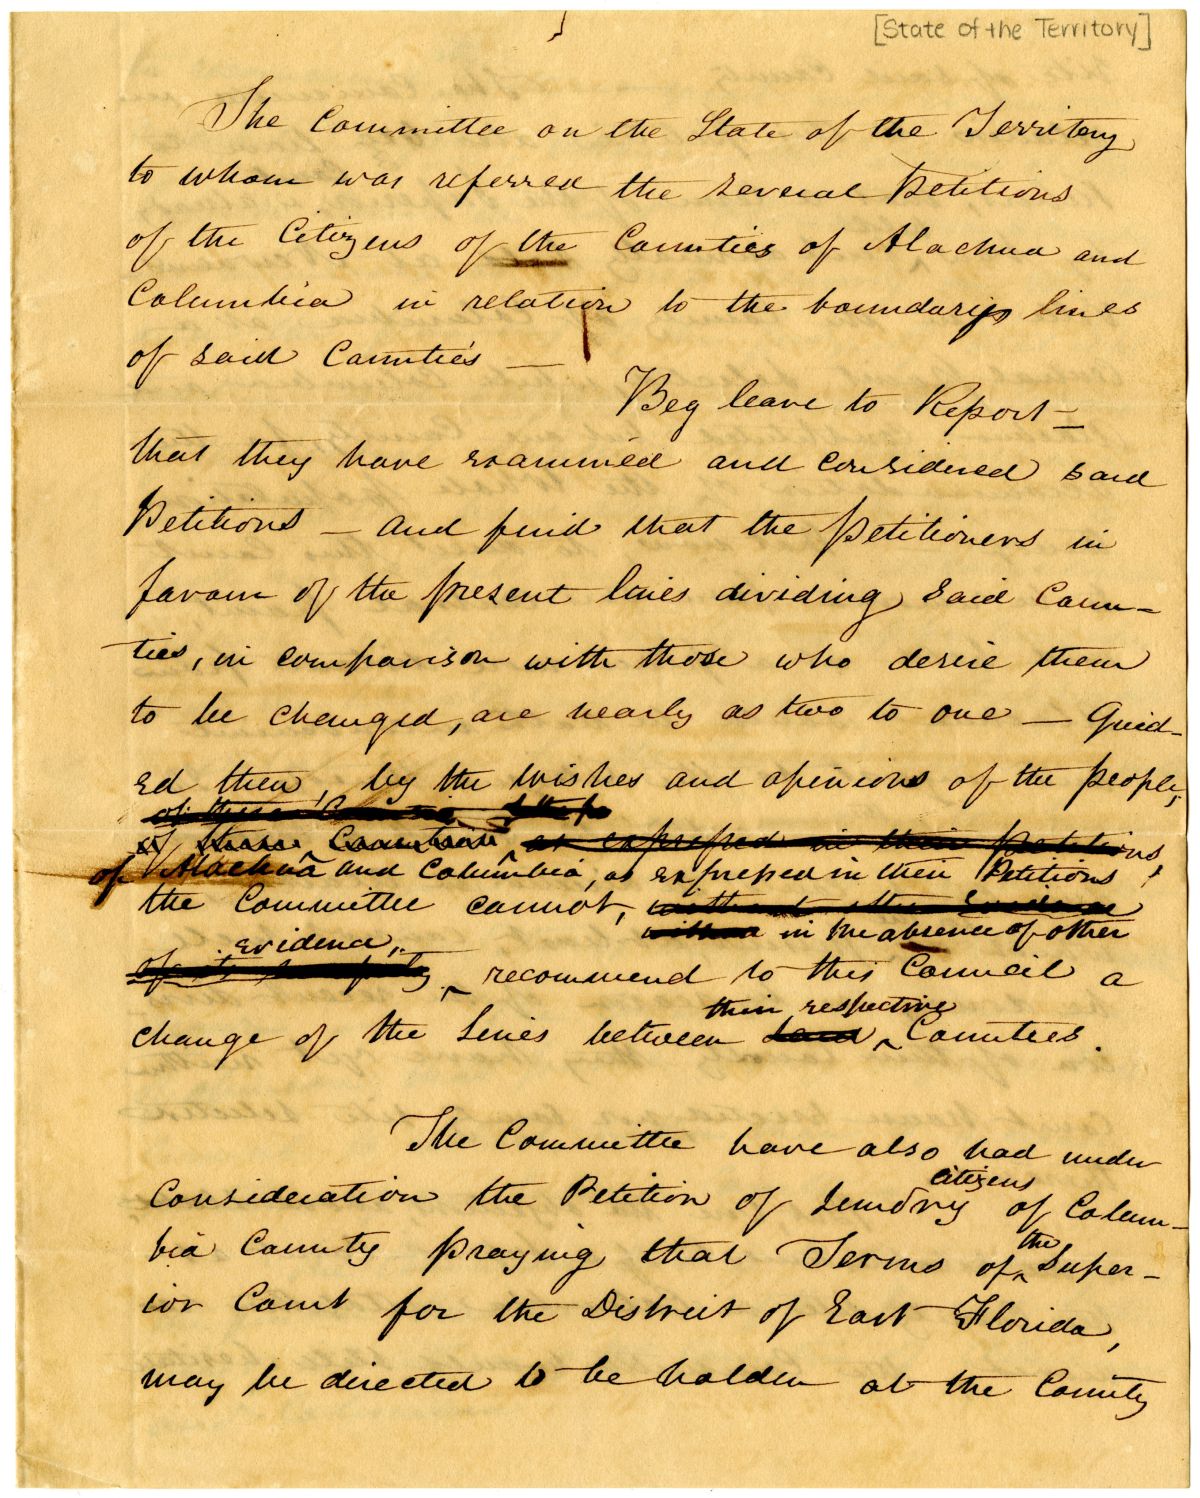 [State of the Territory]
The Committee on the State of the Territory
to whom was referred the several Petitions
of the Citizens of the Counties of Alachua and
Columbia in relation to the boundary lines
of said Counties —
Beg leave to Report —
that they have examined and considered said
Petitions — and find that the petitioners in
favour of the present lines dividing said Coun-
ties, in comparison with those who desire them
to be changed, are nearly as two to one — Guid-
ed then, by the wishes and opinions of the people,
of these
of these Counties, as expressed in their petitions,
of Alachua and Columbia, as expressed in their Petitions,
the Committee cannot, without other Evidence
without in the absence of other
evidence,
of its recommend to this Council a
their respective
change of the lines between said Counties.
The Committee have also had under
citizens
Consideration the Petition of sundry of Colum-
the
bia County praying that Terms of Super-
ior Court for the District of East Florida,
may be directed to be holden at the County